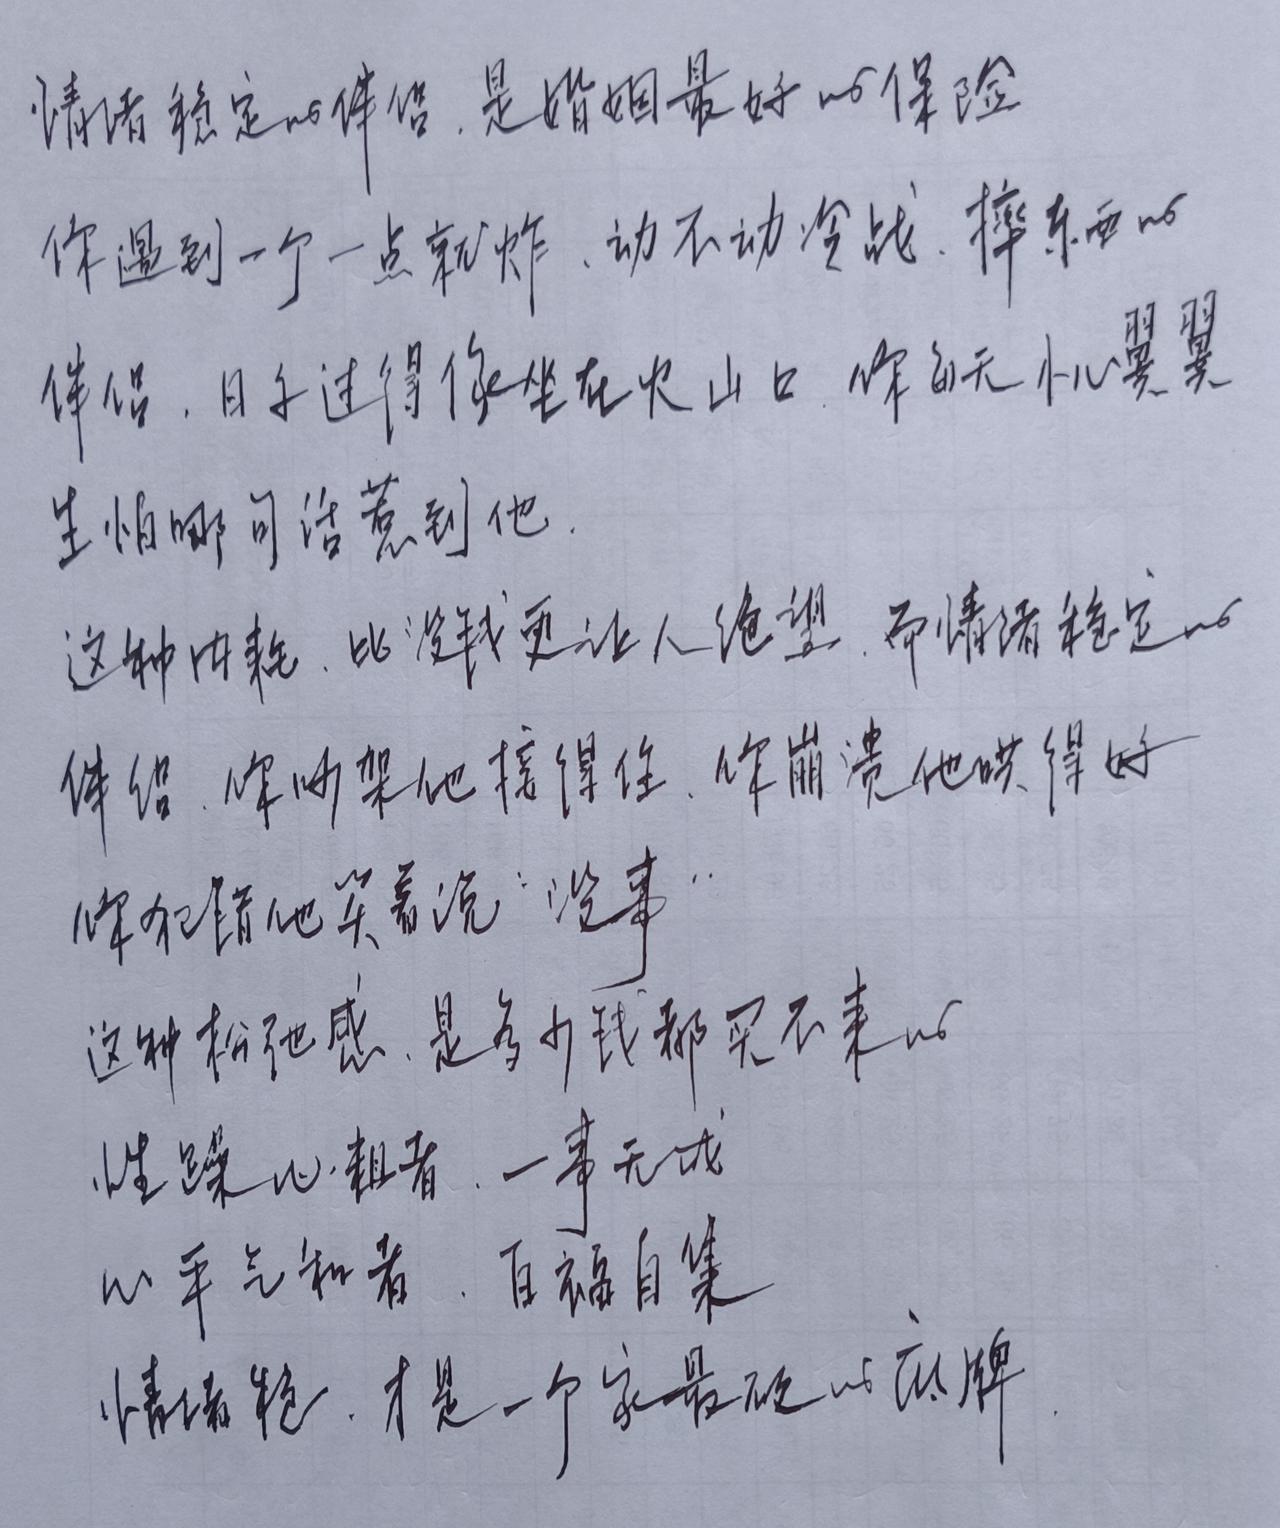 情绪稳定的伴侣.是婚姻最好的保险
你遇到一个一点就炸.动不动冷战.摔东西的
伴侣.日子过得像坐在火山口.你每天小心翼翼
生怕哪句话惹到他.
这种内耗.比没钱更让人绝望.而情绪稳定的
伴侣.你吵架他接得住.你崩溃他哄得好
你犯错他笑着说“没事”
这种松弛感.是多少钱都买不来的
性躁心粗者.一事无成
心平气和者.百福自集
情绪稳.才是一个家最硬的底牌.